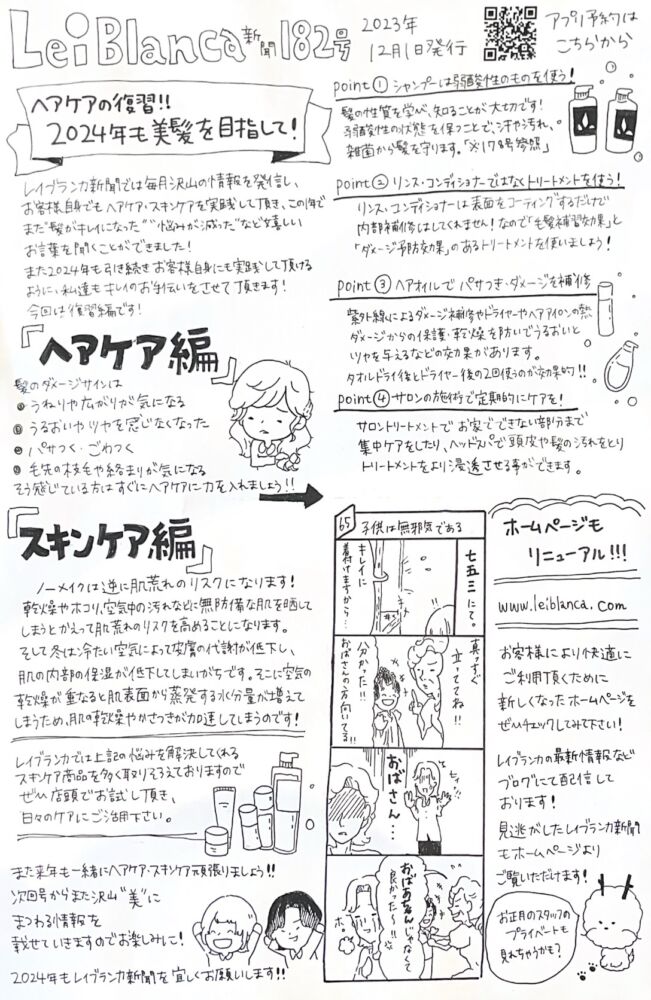 LeiBlanca新聞182号
2023年
12月1日発行
アプリ予約は
こちらから
ヘアケアの復習!!
2024年も美髪を目指して!
レイブランカ新聞では毎月沢山の情報を発信し、
お客様自身でもヘアケア・スキンケアを実践して頂き、この1年で
また"髪がキレイになった""悩みが減った"など嬉しい
お言葉を聞くことができました!
また2024年も引き続きお客様自身にも実践して頂ける
ように、私達もキレイのお手伝いをさせて頂きます!
今回は復習編です!
『ヘアケア編』
髪のダメージサインは
●うねりや広がりが気になる
●うるおいやツヤを感じなくなった
●パサつく・ごわつく
●毛先の枝毛や絡まりが気になる
そう感じている方はすぐにヘアケアに力を入れましょう!!
point①シャンプーは弱酸性のものを使う!
髪の性質を学び、知ることが大切です!
弱酸性の状態を保つことで、汗や汚れ、
雑菌から髪を守ります。「※178号参照」
point②リンス・コンディショナーではなくトリートメントを使う!
リンス・コンディショナーは表面をコーティングするだけで
内部補修はしてくれません!なので「毛髪補習効果」と
「ダメージ予防効果」のあるトリートメントを使いましょう!
point③ヘアオイルでパサつき・ダメージを補修
紫外線によるダメージ補修やドライヤーやヘアアイロンの熱
ダメージからの保護・乾燥を防いでうるおいと
ツヤを与えるなどの効果があります。
タオルドライ後とドライヤー後の2回使うのが効果的!!
point④サロンの施術で定期的にケアを!
サロントリートメントでお家でできない部分まで
集中ケアをしたり、ヘッドスパで頭皮や髪の汚れをとり
トリートメントをより浸透させる事ができます。
『スキンケア編』
ノーメイクは逆に肌荒れのリスクになります!
乾燥やホコリ、空気中の汚れなどに無防備な肌を晒して
しまうとかえって肌荒れのリスクを高めることになります。
そして冬は冷たい空気によって皮膚の代謝が低下し、
肌の内部の保湿が低下してしまいがちです。そこに空気の
乾燥が重なると肌表面から蒸発する水分量が増えて
しまうため、肌の乾燥やかさつきが加速してしまうのです!
レイブランカでは上記の悩みを解決してくれる
スキンケア商品を多く取りそろえておりますので
ぜひ店頭でお試し頂き、
日々のケアにご活用下さい。
また来年も一緒にヘアケア・スキンケア頑張りましょう!!
次回号からまた沢山"美"に
まつわる情報を
載せていきますのでお楽しみに!
2024年もレイブランカ新聞を宜しくお願いします!!
65 子供は無邪気である
七五三にて。
キレイに
着付けますから…
真っすぐ
立っててね!!
分かった!!
おばさんの方向いてる!!
おばさん…
おばあちゃんじゃなくて
良かった〜!!
ホームページも
リニューアル!!!
www.leiblanca.com
お客様により快適に
ご利用頂くために
新しくなったホームページを
ぜひチェックしてみて下さい!
レイブランカの最新情報など
ブログにて配信して
おります!
見逃がしたレイブランカ新聞
もホームページより
ご覧いただけます!
お正月のスタッフの
プライベートも
見れちゃうかも?